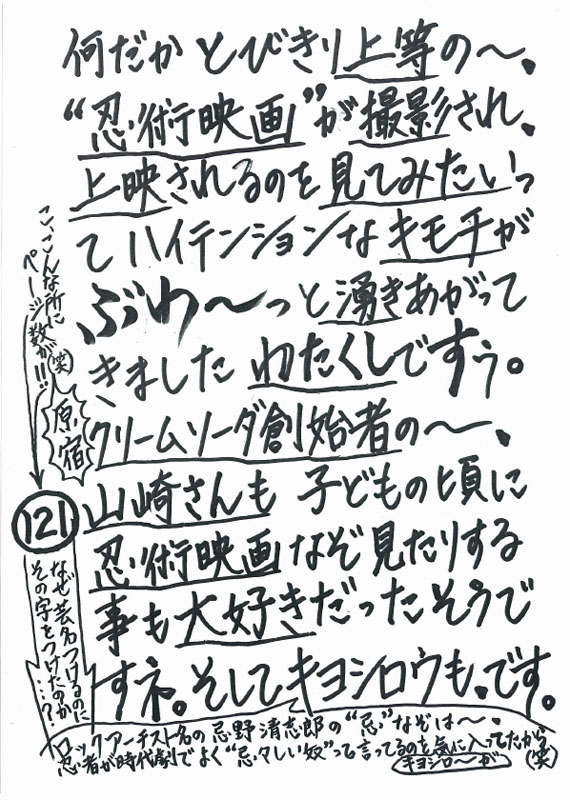 何だか とびきり上等の〜、
“忍術映画”が撮影され、
上映されるのを見てみたいっ
て ハイテンションな キモチが
ぶわ〜っと湧きあがって
きました わたくしですぅ。
原宿
クリームソーダ創始者の〜、
山崎さんも 子どもの頃に
忍術映画なぞ見たりする
事も大好きだったそうで
すネ。そしてキヨシロウも、です。
こ、こんな所に
ページ数が!!(笑)
121
なぜ芸名つけるのに
その字をつけたのか
…?
ロックアーチスト名の忌野清志郎の“忌”なぞは〜、
忍者が時代劇でよく“忌々しい奴”って言ってるのを気に入ってたから(笑)
キヨシロ〜が